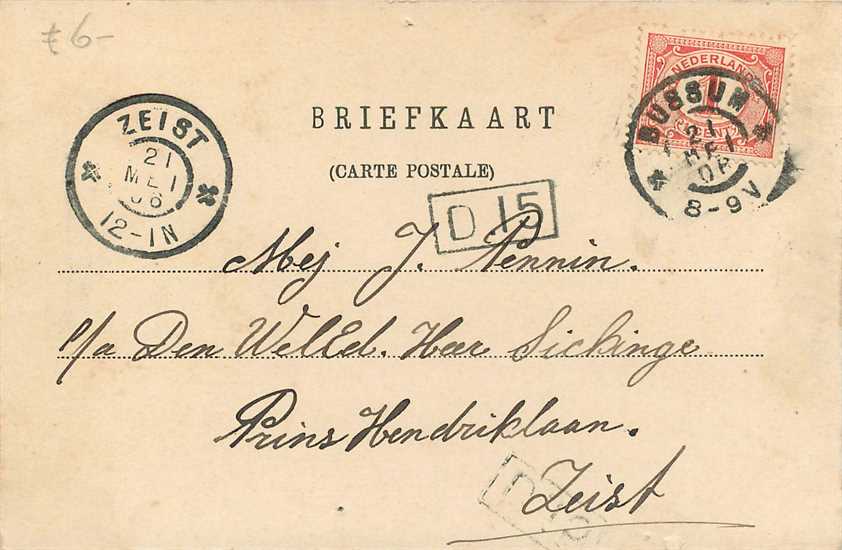 £6-
NEDERLAND
1
CENT
BUSSUM
21
MEI
8-9V
ZEIST
21
MEI
06
12-1N
BRIEFKAART
(CARTE POSTALE)
D 15
Mej J. Pennin.
p/a Den WelEd. Heer Sickinge
Prins Hendriklaan.
Zeist